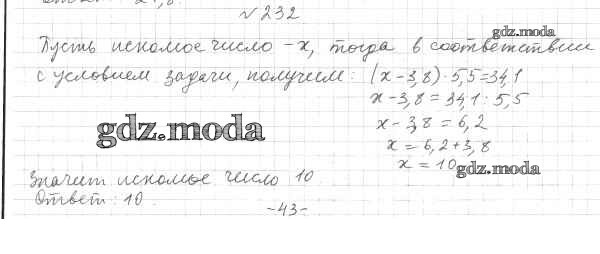 №232
gdz.moda
Пусть искомое число - x, тогда в соответствии
с условием задачи, получим: (x-3,8)·5,5=34,1
x-3,8=34,1:5,5
gdz.moda
x-3,8=6,2
x=6,2+3,8
x=10
gdz.moda
Значит искомое число 10
Ответ: 10.
-43-